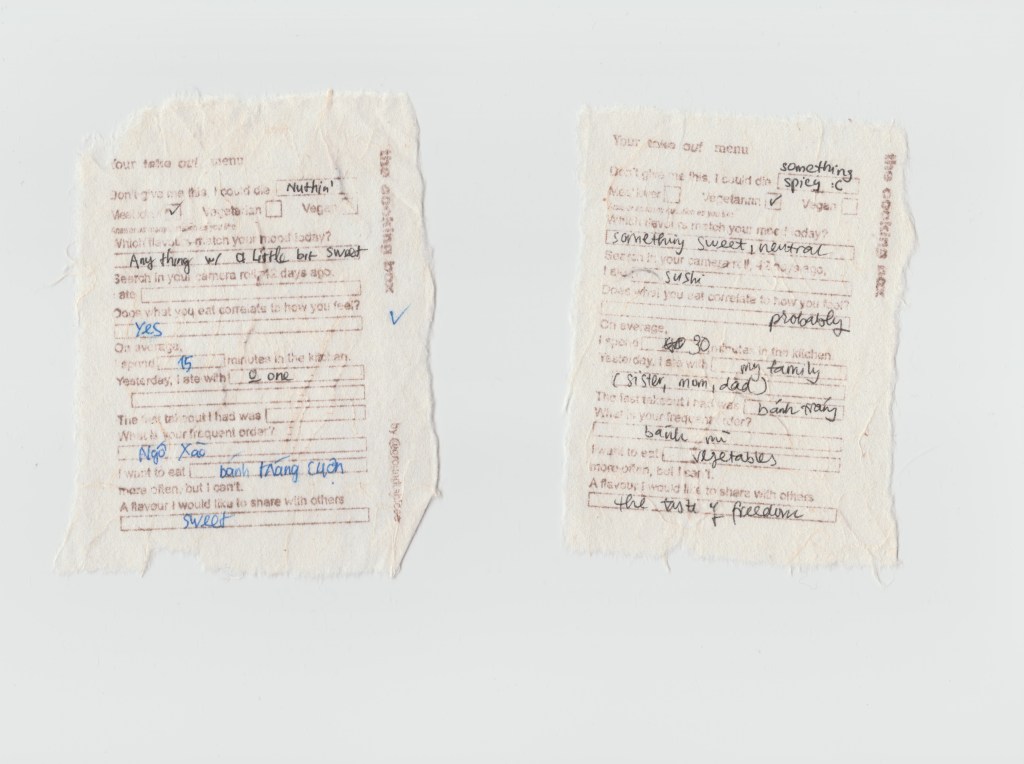 Your take out menu
Don't give me this, I could die Nuthin'
Meat lover ✓ Vegetarian Vegan
Which flavours match your mood today?
Any thing w/ a little bit sweet
Search in your camera roll, 42 days ago,
I ate
Does what you eat correlate to how you feel?
Yes
On average,
I spend 15 minutes in the kitchen.
Yesterday, I ate with 0 one
The last takeout I had was
What is your frequent order?
Ngô Xào
I want to eat bánh tráng cuộn
more often, but I can't.
A flavour I would like to share with others
sweet
the cooking box
✓
Your take out menu
something
Don't give me this, I could die spicy :C
Meat lover Vegetarian ✓ Vegan
Which flavours match your mood today?
something sweet, neutral
Search in your camera roll, 42 days ago,
I ate sushi
Does what you eat correlate to how you feel?
probably
On average,
I spend 30 minutes in the kitchen.
Yesterday, I ate with my family
(sister, mom, dad)
The last takeout I had was bánh tráng
What is your frequent order?
bánh mì
I want to eat vegetables
more often, but I can't.
A flavour I would like to share with others
the taste of freedom
the cooking box